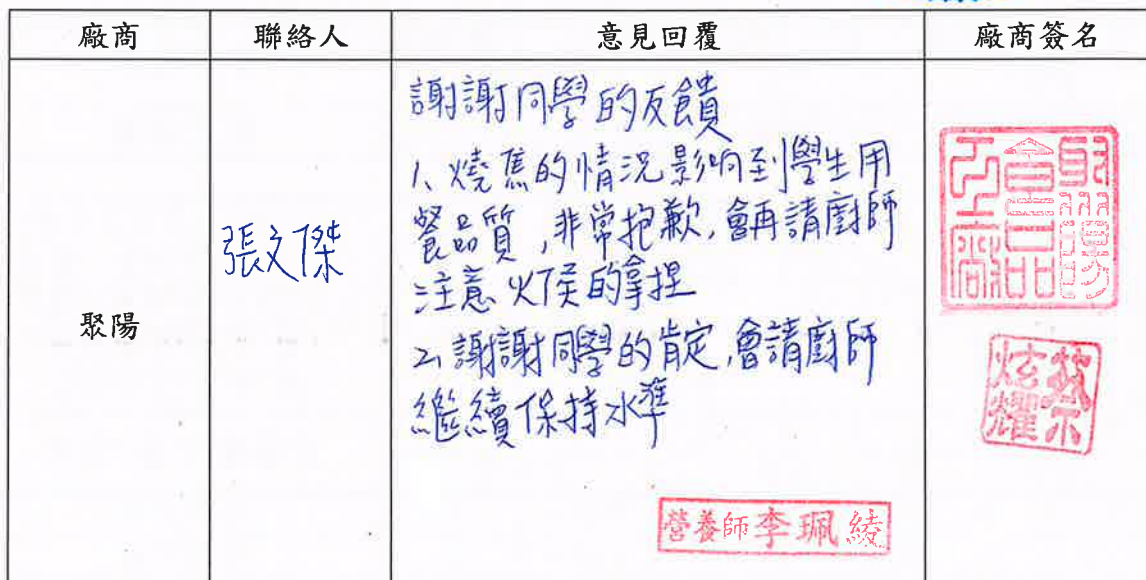 廠商
聯絡人
意見回覆
廠商簽名
聚陽
張文傑
謝謝同學的反饋
1、燒焦的情況影响到學生用
餐品質,非常抱歉,會再請廚師
注意火侯的拿捏
2、謝謝同學的肯定,會請廚師
繼續保持水準
營養師李珮綾
聚陽
食品
工廠
蔡
炫耀